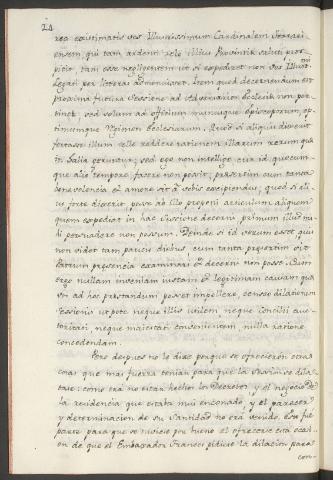 24
rea existimatis vos Illustrissimum Cardinalem Ferrari
ensem, qui tam ardenti zelo illius Provinciæ saluti pros-
picit, tam esse negligentem ut si expediret non vos Illust.mi
Legati per litteras admonuisset. Item quod decernendum est
proxima futura Sessione ad observation Ecclesiæ non per-
tinet, sed solum ad officium munusque Episcoporum, op-
timumque regimen Ecclesiarum. Quod si aliqui dixerint
fortasse illum velle reddere rationem illarum rerum quæ
in Galia geruntur; sed ego non intelligo cur id quocum-
que alio tempore facere non possit, præsertim cum tanta
benevolentia et amore sit à vobis excipiendus; quod si ali-
us forte dixerit posse ab illo proponi articulum aliquem
quem expediat in hac Sessione decerni, primum illud mi-
hi persuadere non possum. Deinde si id verum esset quis
non videt tam paucis diebus cum tanta præsertim sit
Patrum præsencia examinari et decerni non posse. Cum
ergo nullam inveniam iustam et legitimam causam quæ
vos ad hoc præstandum posset impellere, censeo dilationem
Sessionis utpote neque illis utilem neque Concilii auc-
toritati neque maiestati convenientem, nulla ratione
concedendam.
Pero despues no le dixe porque se ofrecieron otras
cosas que mas fuerza tenian para que la Session se dila-
tase: como era no estar hechos los Decretos, y el negocio de
la residencia que estaba mui enconado, y el parecer
y determinacion de su Santidad no era venido. Esa fue
parte para que se tuviese por bueno el ofrecerse esta ocasi-
on de que el Embaxador Frances pidiese la dilacion para
con-